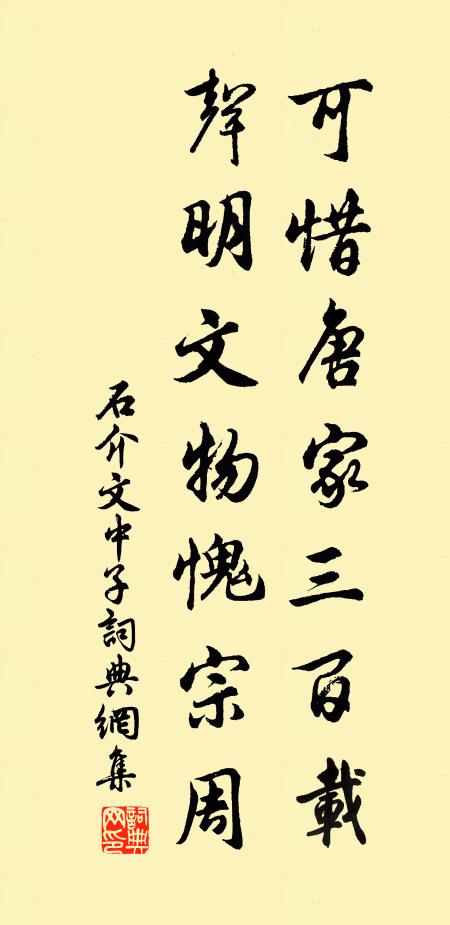 可惜唐家三百載
聲明文物愧宗周
石介文中子詞典網集
詞典網印